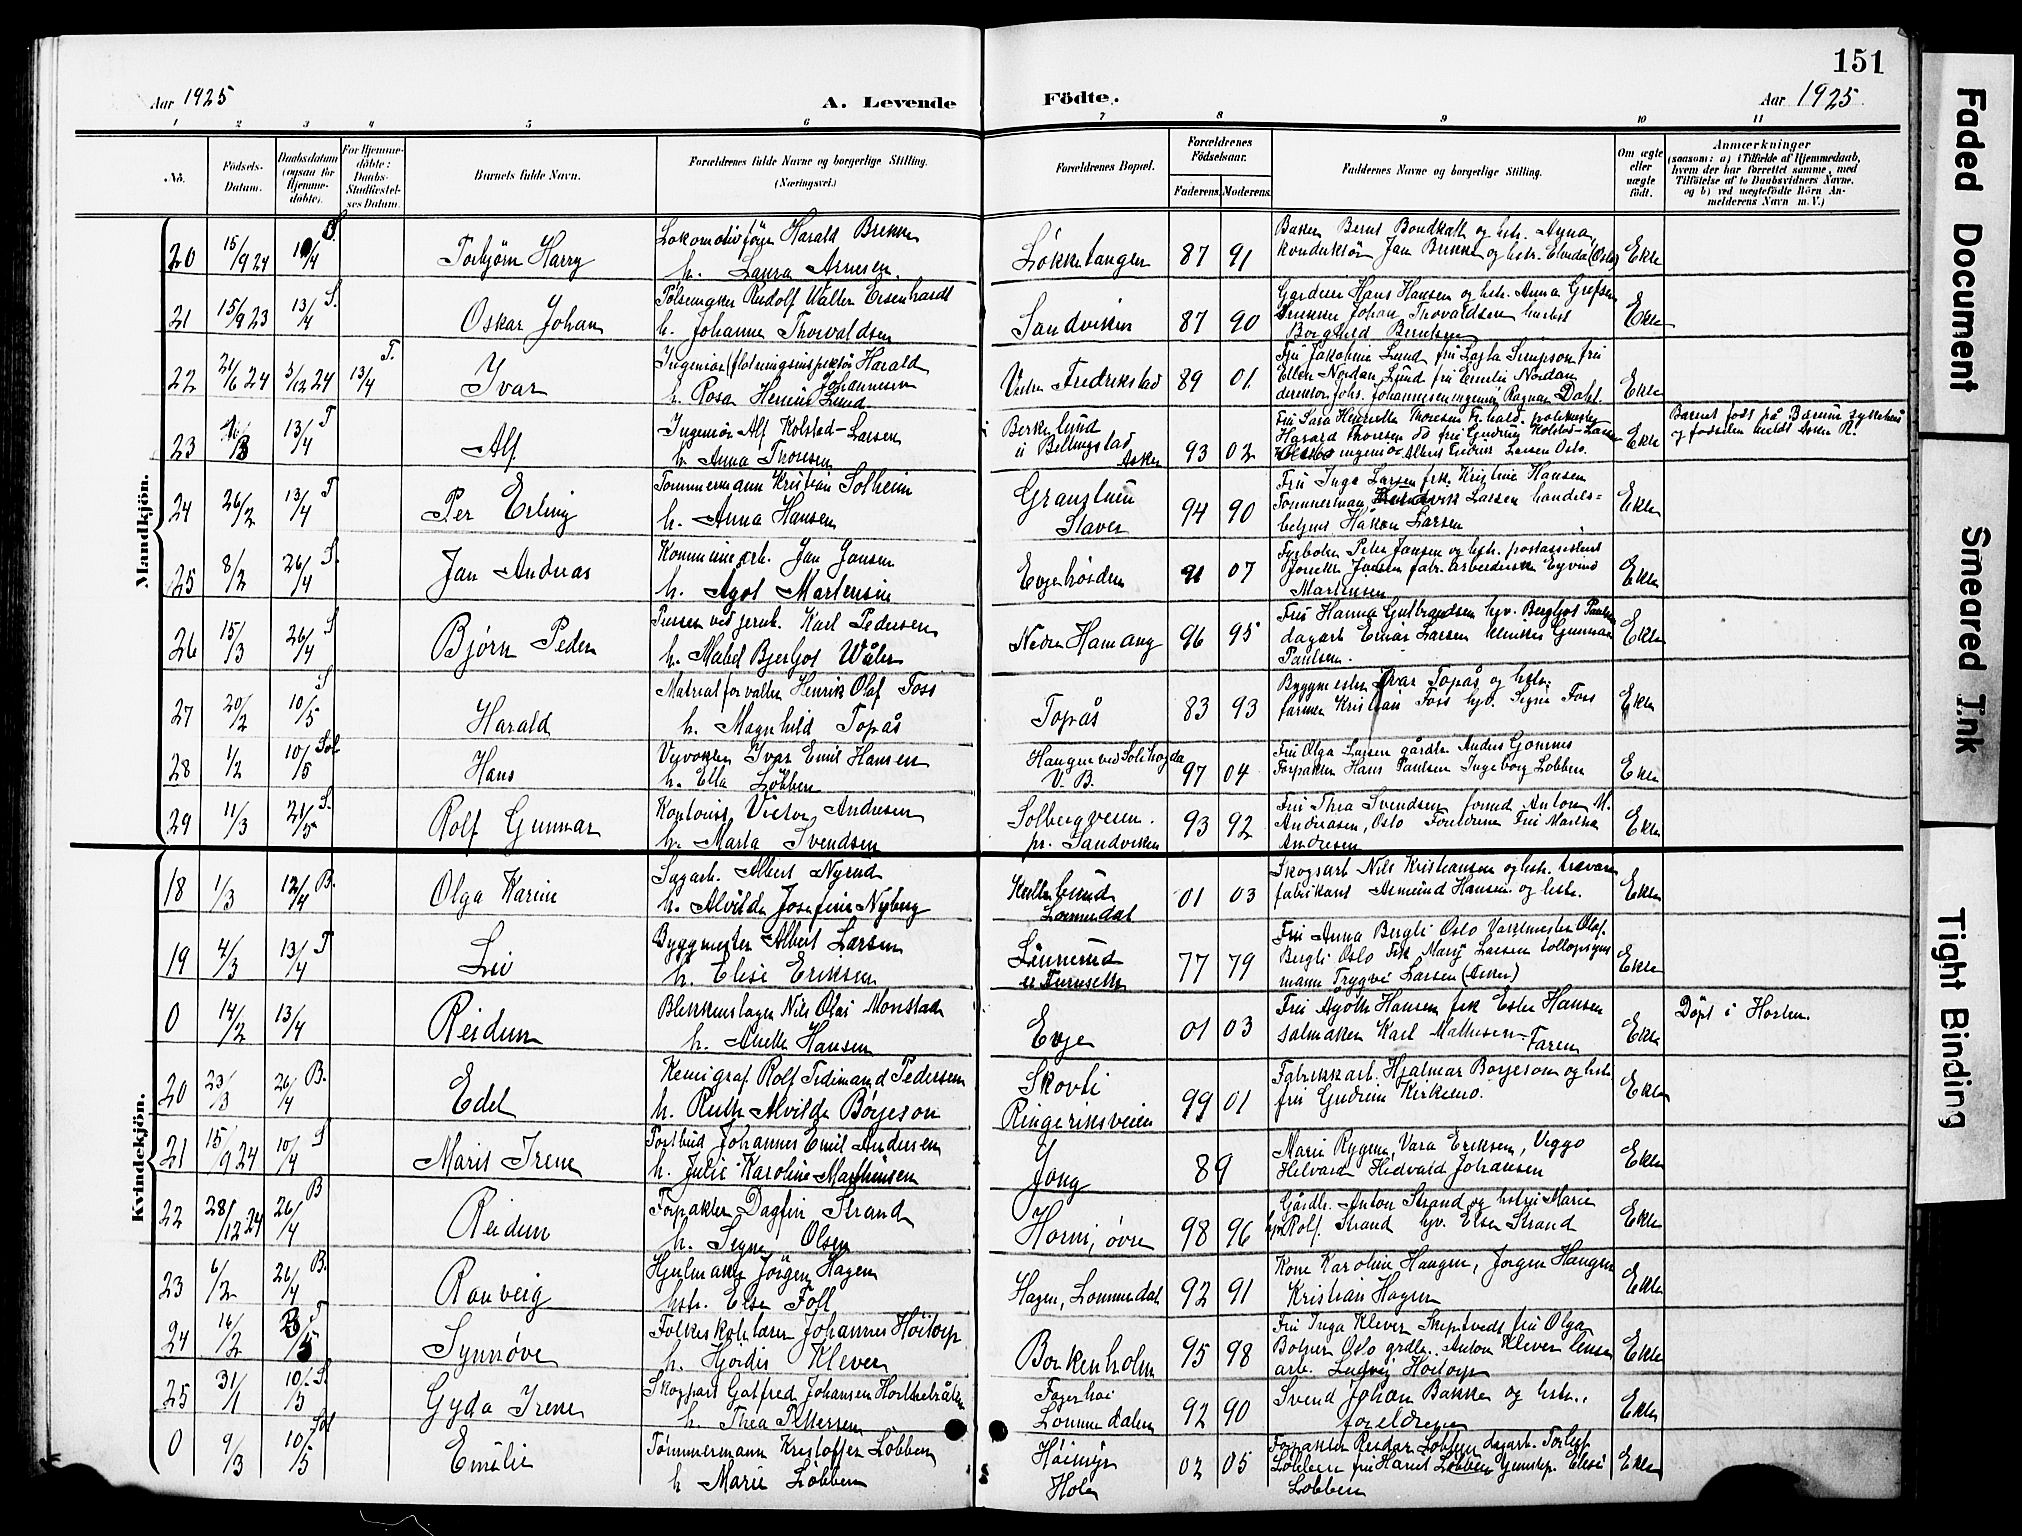 151
Aar 1925
A. Levende
Födte.
Aar 1925
1 2 3 4 5 6 7 8 9 10 11
No.
Födsels-
Datum.
Daabsdatum
(ogsaa for
Hjemme-
döbte).
For Hjemme-
döbte:
Daabs-
Stadfæstel-
ses Datum.
Barnets fulde Navn.
Forældrenes fulde Navne og borgerlige Stilling.
(Næringsvei.)
Forældrenes Bopæl.
Forældrenes
Födselsaar.
Faderens. Moderens.
Faddernes Navne og borgerlige Stilling.
Om ægte
eller
uægte
födt.
Anmærkninger
(saasom: a) i Tilfælde af Hjemmedaab,
hvem der har forrettet samme, med
Tilföielse af to Daabsvidners Navne,
og b) ved uægtefödte Börn An-
melderens Navn m. V.)
Mandkjön.
20 15/9 24 Torbjörn Harry
Lokomotivförer Harald Brekke
h. Laura Arnesen.
Løkketangen 87 91
Ekte
21 15/9 23 13/4 S. Oskar Johan
Pølsemaker Rudolf Walter Eisenhardt
h. Johanne Thorvaldsen
Sandviken 87 90
Gardein Hans Hansen og hstr. Anna Grefsen
Johan Thorvaldsen
Borghild Berntsen
Ekte
22 21/6 24 3/12 24 13/4 T. Ivar
Ingeniør (fløtningsinspektør Harald
Johannesen
h. Rosa Lund
Vestre Fredrikstad 89 01
Fru Jakobine Lund fru Lajla Simpson fru
Ellen Nordan Lund fru Emilie Nordan
direktør Johs. Johannesen ingeniør Ragnar Dahl.
Ekte
23 13/4 T Alf
Ingeniør Alf Kolstad-Larsen
h. Anna Thoresen
Berkelund
i Billingstad
Asker 93 02
Fru Sara Henriette Thoresen
Harald Thoresen fru Gudrun Kolstad-Larsen
Larsen Oslo.
Ekte
Barnet født på Bærum sykehus
og fødselen meldt Asker R.
24 26/2 13/4 T Per Erling
Tømmermann Kristian Solheim
h. Anna Hansen
Granstuen
Slaver 94 90
Fru Inga Larsen frk. Kristine Hansen
Tømmerman Larsen handels-
betjent Håkon Larsen
Ekte
25 8/2 26/4 S. Jan Andreas
Kommunearb. Jan Jansen
h. Agot Martensen
Evjehøiden 91 07
Fyrbøter Peter Jansen og hstr. postassistent
Jansen fabr. arbeiderske Eyvind
Martensen
Ekte
26 15/3 26/4 S Bjørn Peder
Pusser ved jernb. Karl Pedersen
h. Mabel Bjergljot Wåler
Nedre Hamang 96 95
Fru Hanna Gulbrandsen hjv. Bergljot Paulsen
dagarb Einar Larsen Gunnar
Paulsen.
Ekte
27 20/2 10/5 S Harald
Matrealforvalter Henrik Olaf Foss
h. Magnhild Topås
Topås 83 93
Byggmester Ivar Topås og hstr.
farmer Kristian Foss hjv. Signe Foss
Ekte
28 1/2 10/5 Sol Hans
Veivokter Ivar Emil Hansen
h. Ella Løbben
Haugen ved Solihøgda
V. B. 97 04
Fru Olga Larsen gårdbr. Anders Gommes
Forpakter Hans Paulsen Ingeborg Løbben
Ekte
29 11/3 21/5 S. Rolf Gunnar
Kontorist Victor Andresen
h. Marta Svendsen
Solbergveien.
pr. Sandviken 93 92
Fru Thea Svendsen Anton M.
Andreasen, Oslo Foreldrene Fru Martha
Andresen
Ekte
Kvindekjön.
18 1/3 12/4 B. Olga Karine
Sagarb. Albert Nyrud
h. Alvilda Josefine Nyberg
Lommedal 01 03
Skogsarb Nils Kristiansen og hstr. trævare
fabrikant Hansen og hstr.
Ekte
19 4/3 13/4 T Liv
Byggmester Albert Larsen
h. Elise Eriksen
77 79
Fru Anna Bergli Oslo Vaktmester Olaf
Bergli Oslo Frk Mary Larsen tollopsyns
mann Trygve Larsen (Asker)
Ekte
0 14/2 13/4 Reidun
Blikkenslager Nils Olai Monstad
h. Anette Hansen
Evje 01 03
Fru Agoth Hansen frk Ester Hansen
salmaker Karl Mathisen
Faren
Ekte
Døpt i Horten.
20 23/3 26/4 B. Edel
Kemigraf Rolf Ferdinand Pedersen
h. Ruth Alvilde Børjeson
Skovli
Ringeriksveien 99 01
Fabrikkarb. Hjalmar Børjeson og hstr
fru Gudrun Kirkemo.
Ekte
21 15/9 24 10/4 S Marit Irene
Postbud Johannes Emil Andersen
h. Julie Karoline Mathisen
Jong 89
Marie Rygen, Vara Eriksen, Viggo
Helvard Hedvald Johansen
Ekte
22 28/12 24 26/4 B Reidun
Forpakter Dagfin Strand
h. Signe Olsen
Horni, øvre 98 96
Gårdbr. Anton Strand og hstr Marie
Rolf Strand hjv. Else Strand
Ekte
23 6/2 26/4 B. Ranveig
Hjulmaker Jörgen Hagen
hstr. Elise Foll
Hagen, Lommedal 92 91
Kone Karoline Haugen, Jørgen Haugen
Kristian Hagen
Ekte
24 16/2 T Synnøve
Folkeskolelærer Johannes Høitorp
h. Hjördis Klever
Borkenholm 95 98
Fru Inga Klever Skiptvedt fru Olga
Oslo grdbr. Anton Klever
arb. Ludvig Høitorp
Ekte
25 31/1 10/5 S. Gyda Irene
Skogsarb Gotfred Johansen
h. Thea Pettersen
Fagerhoi
Lommedalen 92 90
Svend Johan Bakken og hstr.,
foreldrene
Ekte
0 9/3 10/5 Sol Emilie
Tømmermann Kristoffer Løbben
h. Marie Løbben
Høimyr
Hole 02 05
Forpakter Reidar Løbben dagarb. Torleif
Løbben fru Løbben Elise
Løbben
Ekte
Faded Document
Smeared Ink
Tight Binding